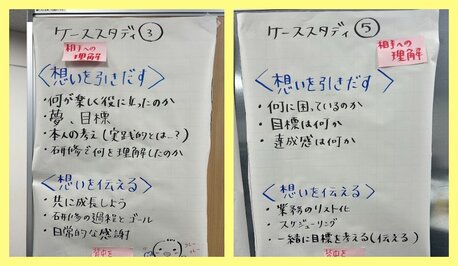 ケーススタディ ③
相手への
理解
〈想いを引きだす〉
・何が楽しく役に立ったのか
・夢、目標
・本人の考え(実践的とは…?)
・研修で何を理解したのか
〈想いを伝える〉
・共に成長しよう
・研修の過程とゴール
・日常的な感謝
背中を
ケーススタディ ⑤
相手への
理解
〈想いを引きだす〉
・何に困っているのか
・目標は何か
・達成感は何か
〈想いを伝える〉
・業務のリスト化
・スケジューリング
・一緒に目標を考える(伝える)
背中を